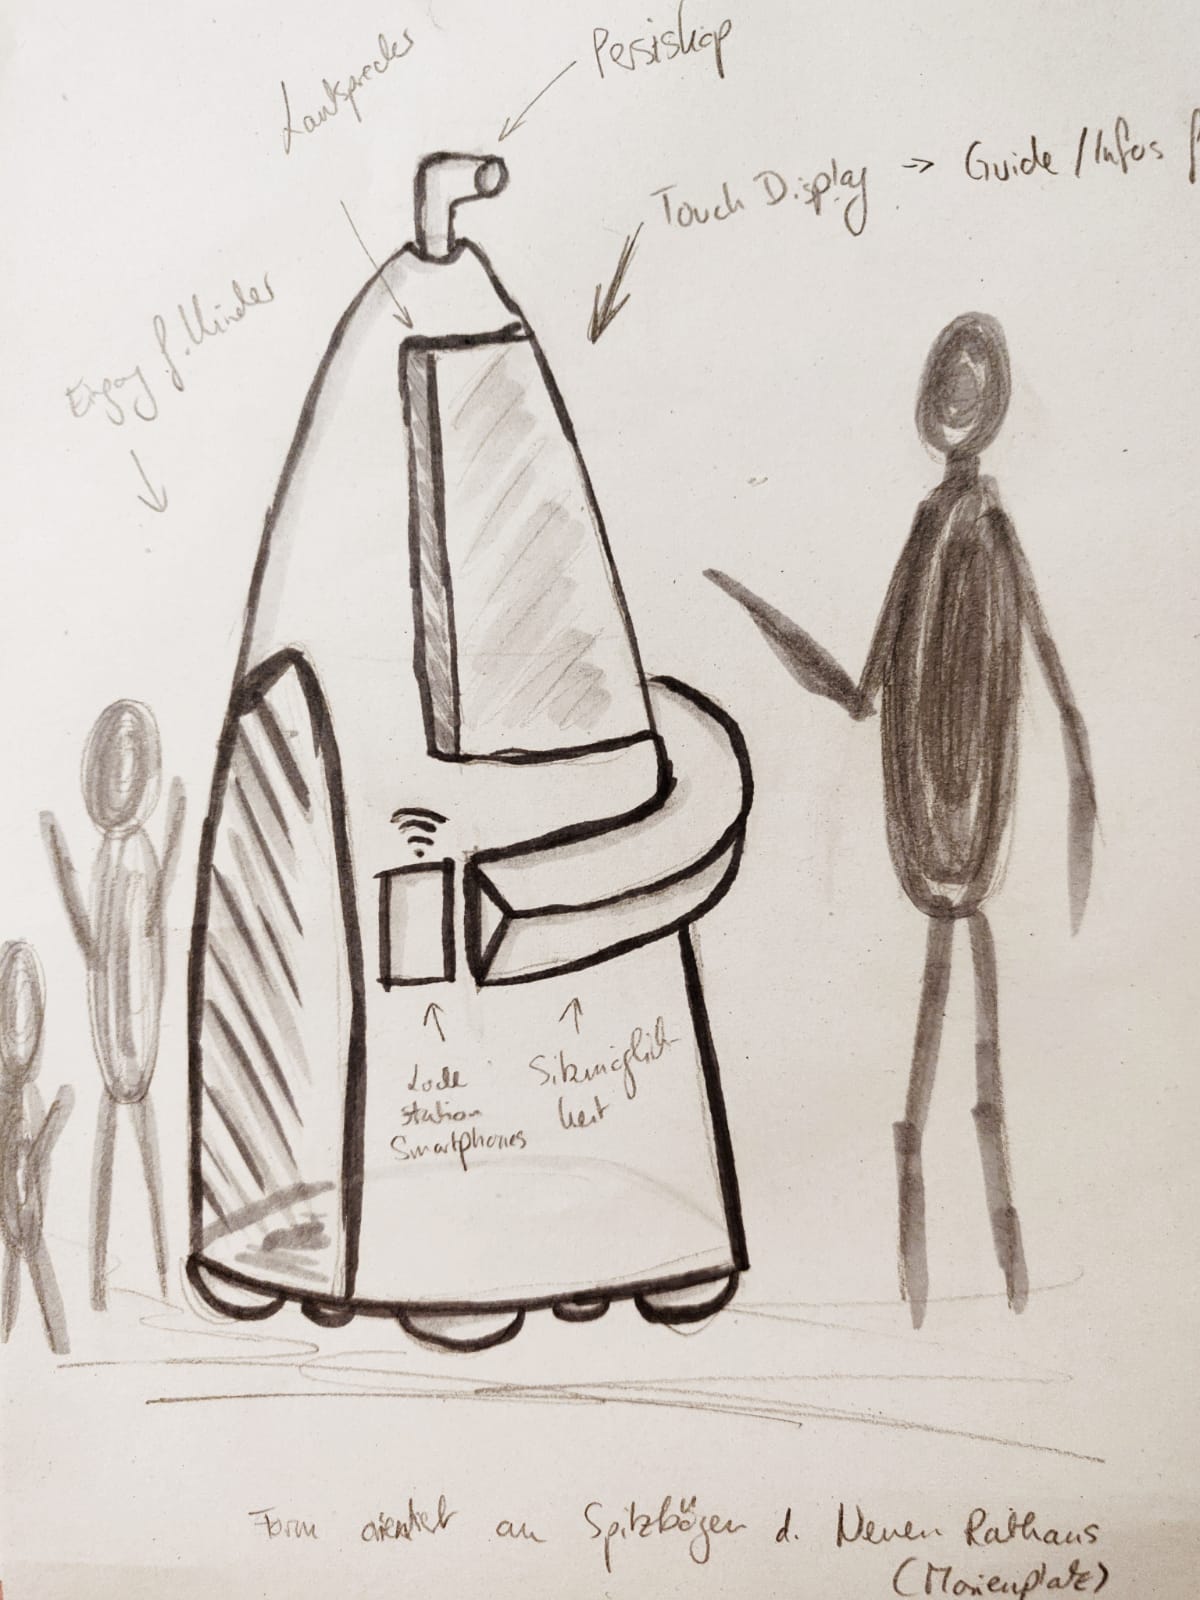 Lautsprecher
Persiskop
Touch Display → Guide / Infos f
Eingang f. Kinder
Lade
station
Smartphones
Sitzmöglich-
keit
Form orientiert an Spitzbögen d. Neuen Rathaus
(Marienplatz)